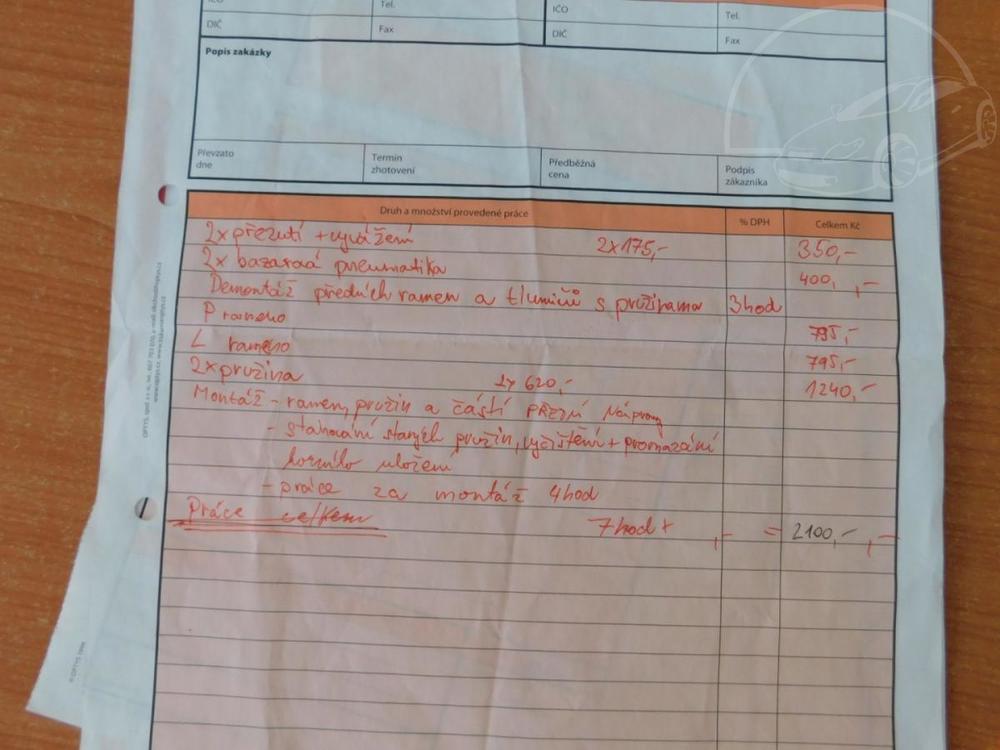 IČO Tel. IČO Tel.
DIČ Fax DIČ Fax
Popis zakázky
Převzato dne Termín zhotovení Předběžná cena Podpis zákazníka
Druh a množství provedené práce % DPH Celkem Kč
2x přezutí + vyvážení 2x175,- 350,-
2x bazarová pneumatika 400,-
Demontáž předních ramen a tlumičů s pružinama 3hod
P rameno 795,-
L rameno 795,-
2x pružina 2x 620,- 1240,-
Montáž - ramen, pružin a částí přední nápravy
- stahování starých pružin, vyčištění + promazání
horního uložení
- práce za montáž 4hod
Práce celkem 7hod x ,- = 2100,- ,-